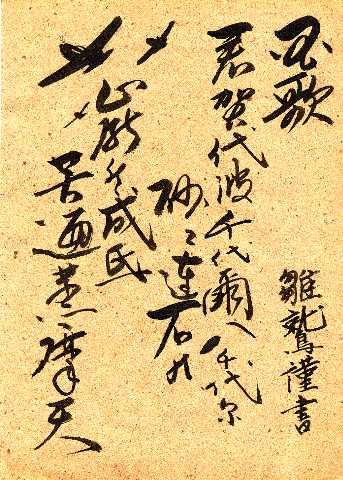 国歌
君賀代波千代爾八千代尓
砂ゝ連石乃
巌登成氏
苔迺蒸摩天
雛鷲謹書